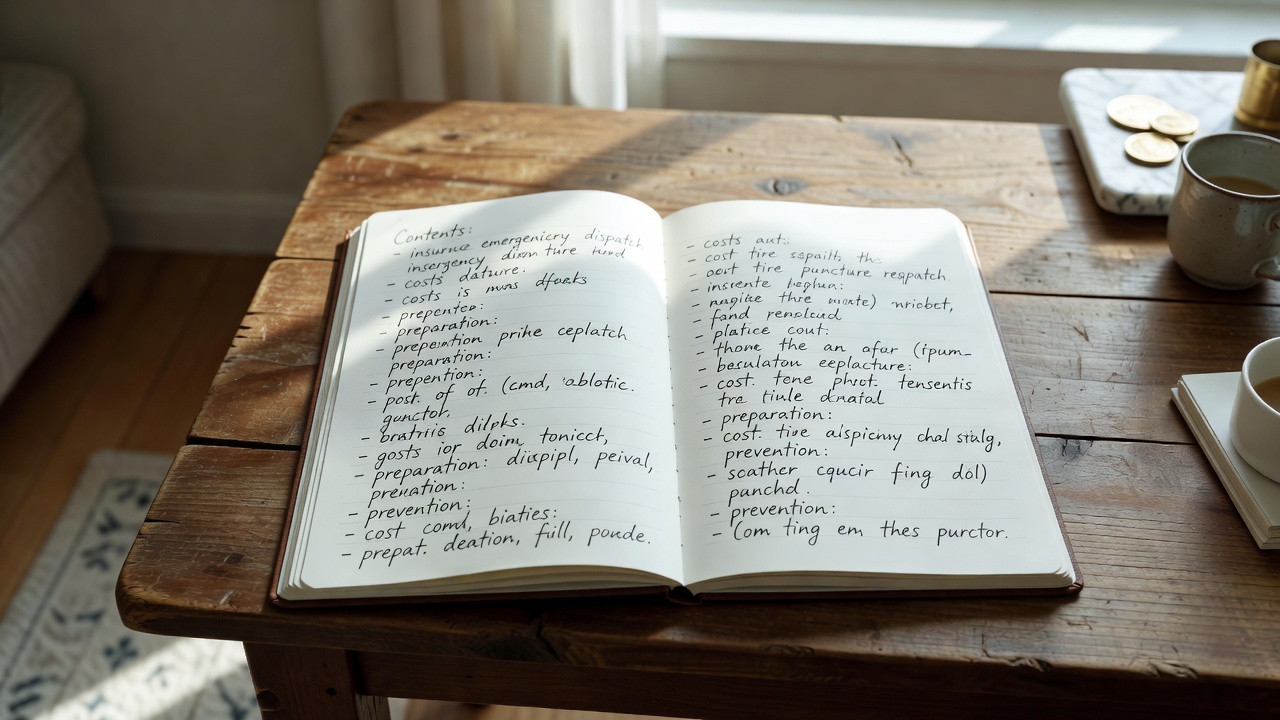 Contents:
- insurnce emergenicry dispatch
insergency
- costs dature:
- costs is mvas dfoaks
- prepenteo:
- preparation:
- prepeination prike ceplatch
preparation:
- prepention:
- post. of of. (cmd, ablotic.
gunctot.
- bratriis dilpks.
- gosts ior doim tonicct,
- preparation: diispipl, peival,
prenation:
- prevention:
- cost comd, biaties:
- prepat. deation, fill, poude.
- costs aut:
- cost tire sspaith the
- oort tire puncture reqpatch
- inscente heghua:
- magike thre mante) nricbet,
- fand renolcud
- platice cout:
- thone the an afar (ipum-
- besulaton eeplacture:
- cost. tone phot. tensentis
tre tinle dnatal
- preparation:
- cost. tive alspicny chal stalg,
prevention:
- scather cqucir fing dol)
panchd.
- prevention:
- (om ting em thes purctor.